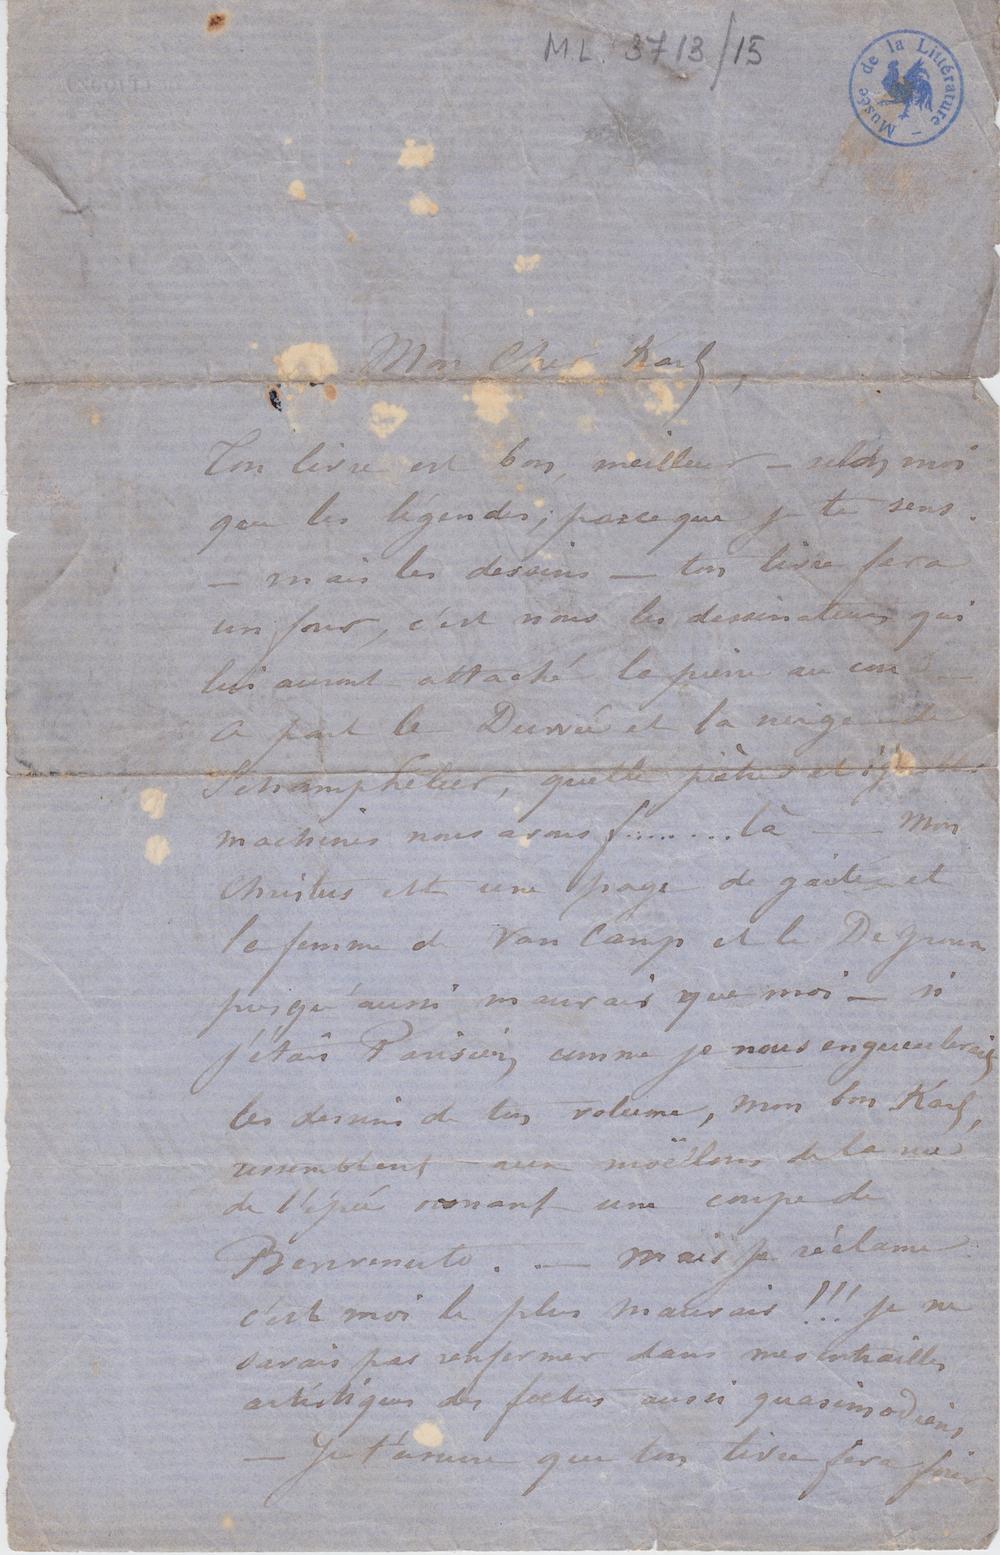 ML. 3713/15
Musée de la Littérature
Mon Cher Karl,
Ton livre est bon, meilleur – selon moi
que les légendes; parceque je te sens.
– mais les dessins – ton livre fera
un four, c'est nous les dessinateurs qui
lui auront attaché la pierre au cou –
a part le Duwée et la neige de
Schampheleer, quelle piètres et
machines nous avons f.......là — Mon
Christus est une page de gaité et
la femme de Van Camp et le De Groux
presqu'aussi mauvais que moi – si
j'étais Parisien, comme je nous engueulerais
les dessins de ton volume, mon bon Karl,
ressemblent aux moëllons de la rue
de l'épée ornant une coupe de
Benvenuto. — mais je réclame
c'est moi le plus mauvais !!! je ne
savais pas renfermer dans mes entrailles
artistiques des foetus aussi quasimodiens
— Je t'assure que ton livre fera four